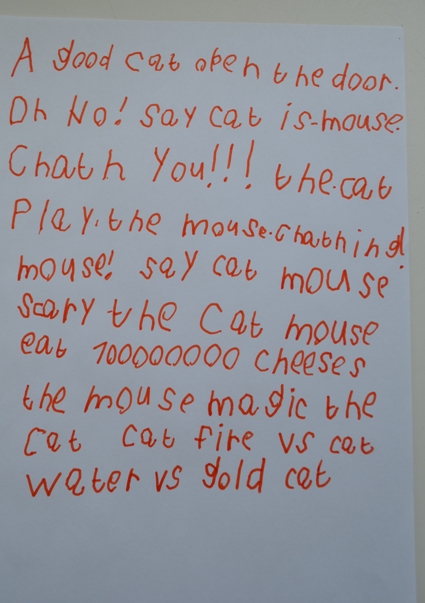 A good cat open the door.
Oh No! say cat is-mouse.
Chath You!!! the.cat
Play.the mouse.Chathing!
mouse! say cat mouse
scary the Cat mouse
eat 100000000 cheeses
the mouse magic the
cat cat fire vs cat
water vs gold cat